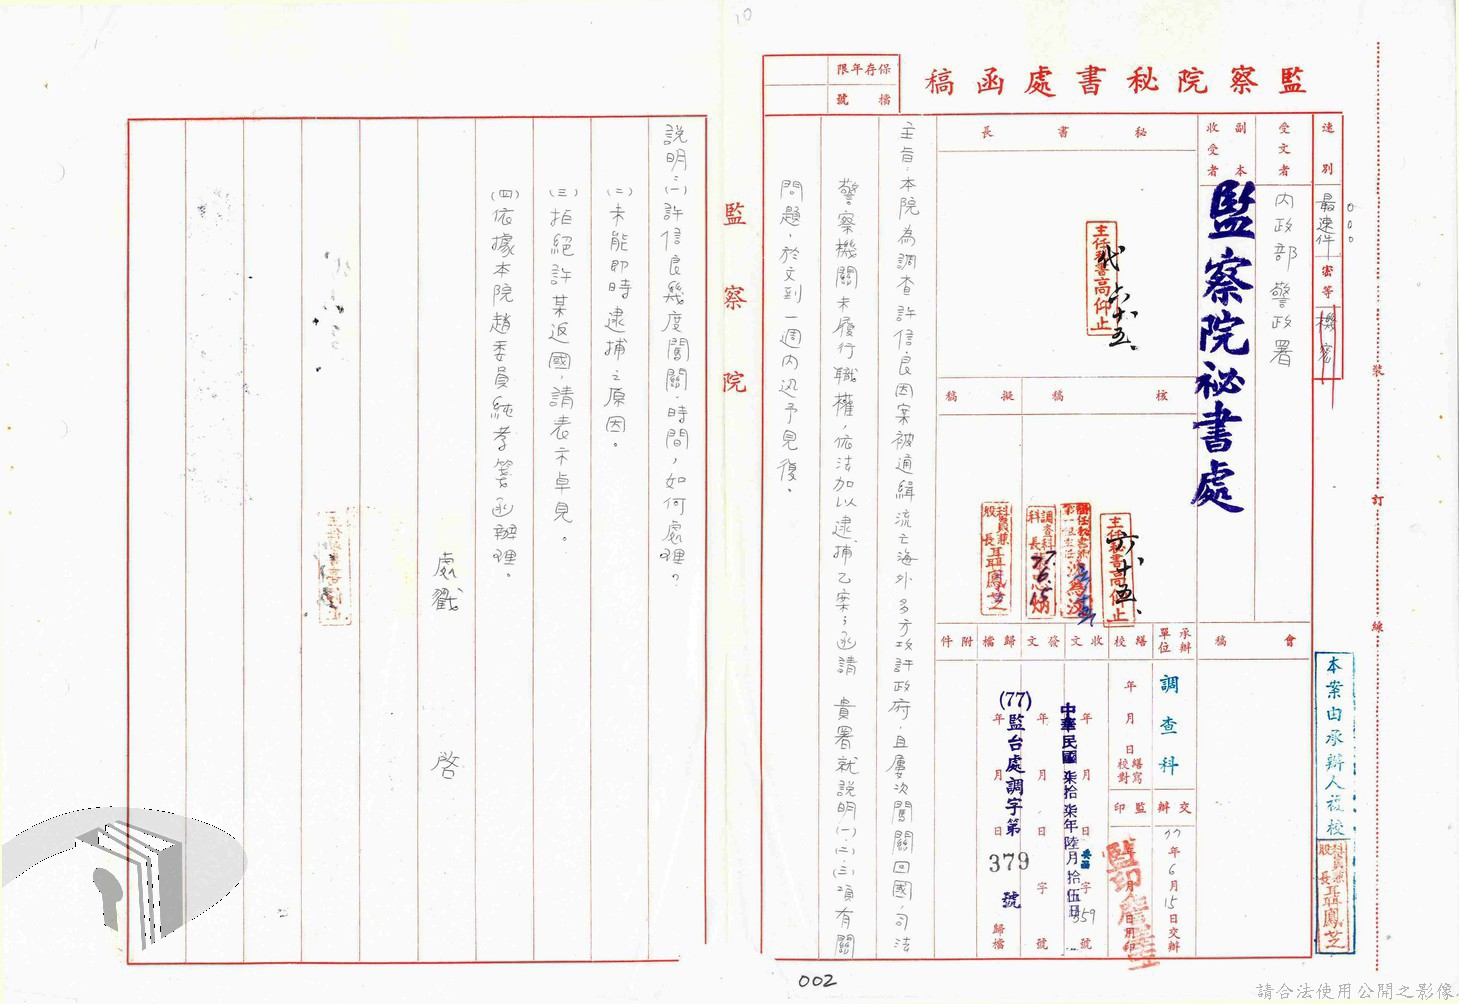 監察院秘書處函稿
保存年限
檔號
速別
最速件
密等
機密
受文者
內政部警政署
副本收受者
監察院秘書處
秘書長
主任秘書高仰止
代
六.十五.
核稿
擬稿
主任秘書高仰止
六.十五.
調查科科長
77.6.15
科員兼股長聶鳳芝
會稿
承辦單位
調查科
繕校
年月日
繕寫
校對
收文
發文
歸檔
附件
交辦
77年6月15日交辦
監印
中華民國柒拾柒年陸月拾伍日
字359號
(77)監台處調字第379號
年月日
歸檔
本案由承辦人複校
科員兼股長聶鳳芝
主旨：本院為調查許信良因案被通緝流亡海外多方攻訐政府，且屢次闖關回國，司法
警察機關未履行職權，依法加以逮捕乙案；函請 貴署就說明(一)(二)(三)項有關
問題，於文到一週內迅予見復。
監察院
說明：(一)許信良幾度闖關，時間，如何處理？
(二)未能即時逮捕之原因。
(三)拒絕許某返國，請表示卓見。
(四)依據本院趙委員純孝箋函辦理。
處戳 啓
裝訂線
002
10
請合法使用公開之影像